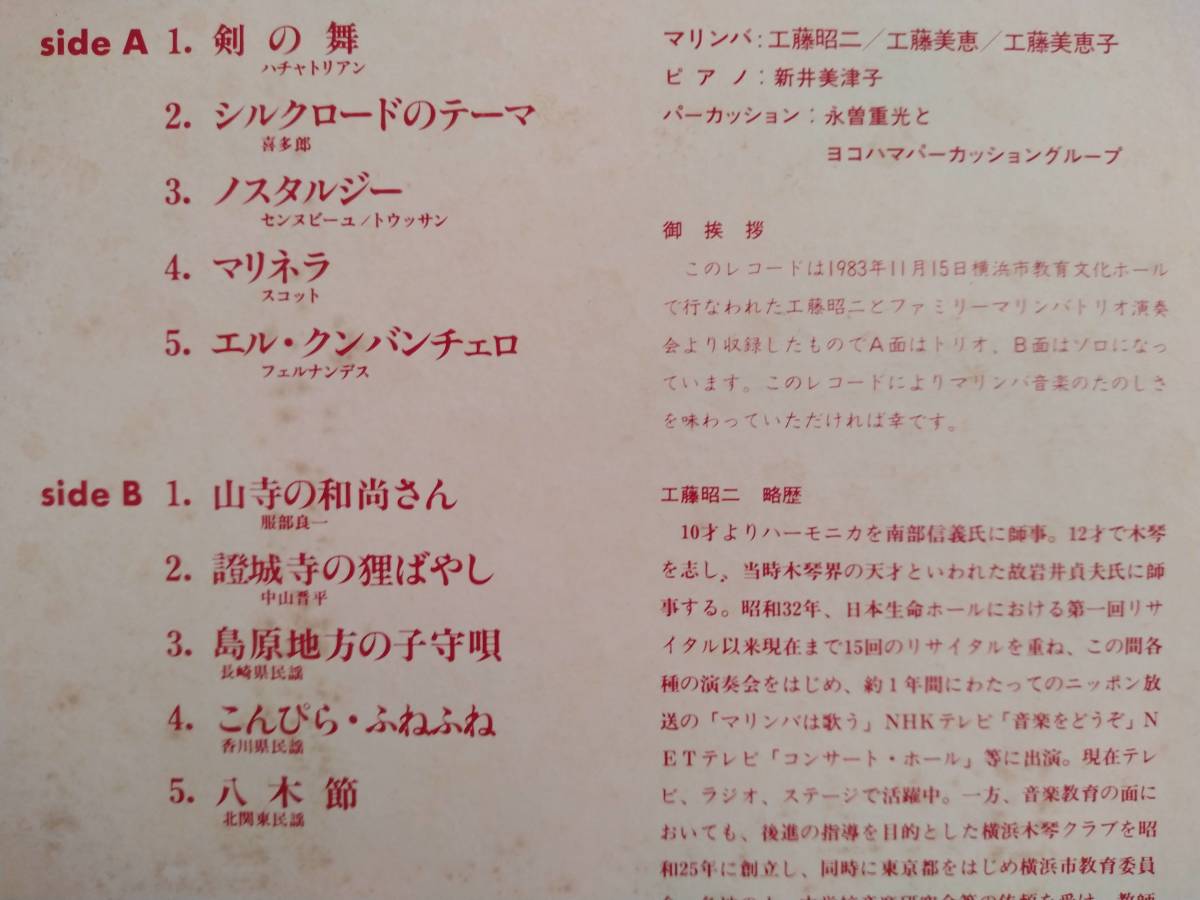 side A 1. 剣の舞
ハチャトリアン
2. シルクロードのテーマ
喜多郎
3. ノスタルジー
センヌビーユ/トウッサン
4. マリネラ
スコット
5. エル・クンバンチェロ
フェルナンデス
side B 1. 山寺の和尚さん
服部良一
2. 證城寺の狸ばやし
中山晋平
3. 島原地方の子守唄
長崎県民謡
4. こんぴら・ふねふね
香川県民謡
5. 八木節
北関東民謡
マリンバ:工藤昭二/工藤美恵/工藤美恵子
ピアノ:新井美津子
パーカッション:永曽重光と
ヨコハマパーカッショングループ
御挨拶
このレコードは1983年11月15日横浜市教育文化ホール
で行なわれた工藤昭二とファミリーマリンバトリオ演奏
会より収録したものでA面はトリオ、B面はソロになっ
ています。このレコードによりマリンバ音楽のたのしさ
を味わっていただければ幸です。
工藤昭二 略歴
10才よりハーモニカを南部信義氏に師事。12才で木琴
を志し、当時木琴界の天才といわれた故岩井貞夫氏に師
事する。昭和32年、日本生命ホールにおける第一回リサ
イタル以来現在まで15回のリサイタルを重ね、この間各
種の演奏会をはじめ、約1年間にわたってのニッポン放
送の「マリンバは歌う」NHKテレビ「音楽をどうぞ」N
ETテレビ「コンサート・ホール」等に出演。現在テレ
ビ、ラジオ、ステージで活躍中。一方、音楽教育の面に
おいても、後進の指導を目的とした横浜木琴クラブを昭
和25年に創立し、同時に東京都をはじめ横浜市教育委員